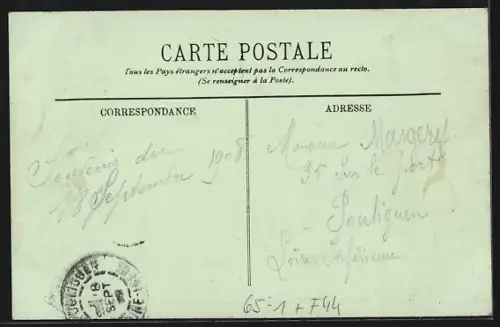 CARTE POSTALE
Tous les Pays étrangers n'acceptent pas la Correspondance au recto.
(Se renseigner à la Poste).
CORRESPONDANCE
ADRESSE
Souvenir du
18 Septembre 1908
Monsieur
sur le port
Pouliguen
Loire Inférieure
SEPT
65-1 + F44